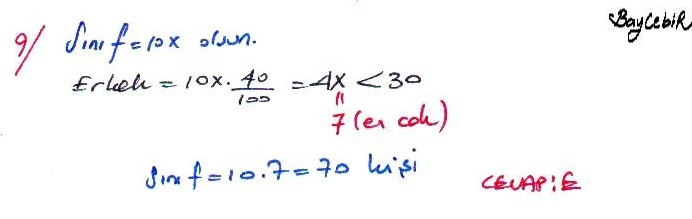 BayCebiR
9/ Sınıf = 10x olsun.
Erkek = 10x. 40/100 = 4x < 30
=
7 (en çok)
Sınıf = 10.7 = 70 kişi
CEVAP: E